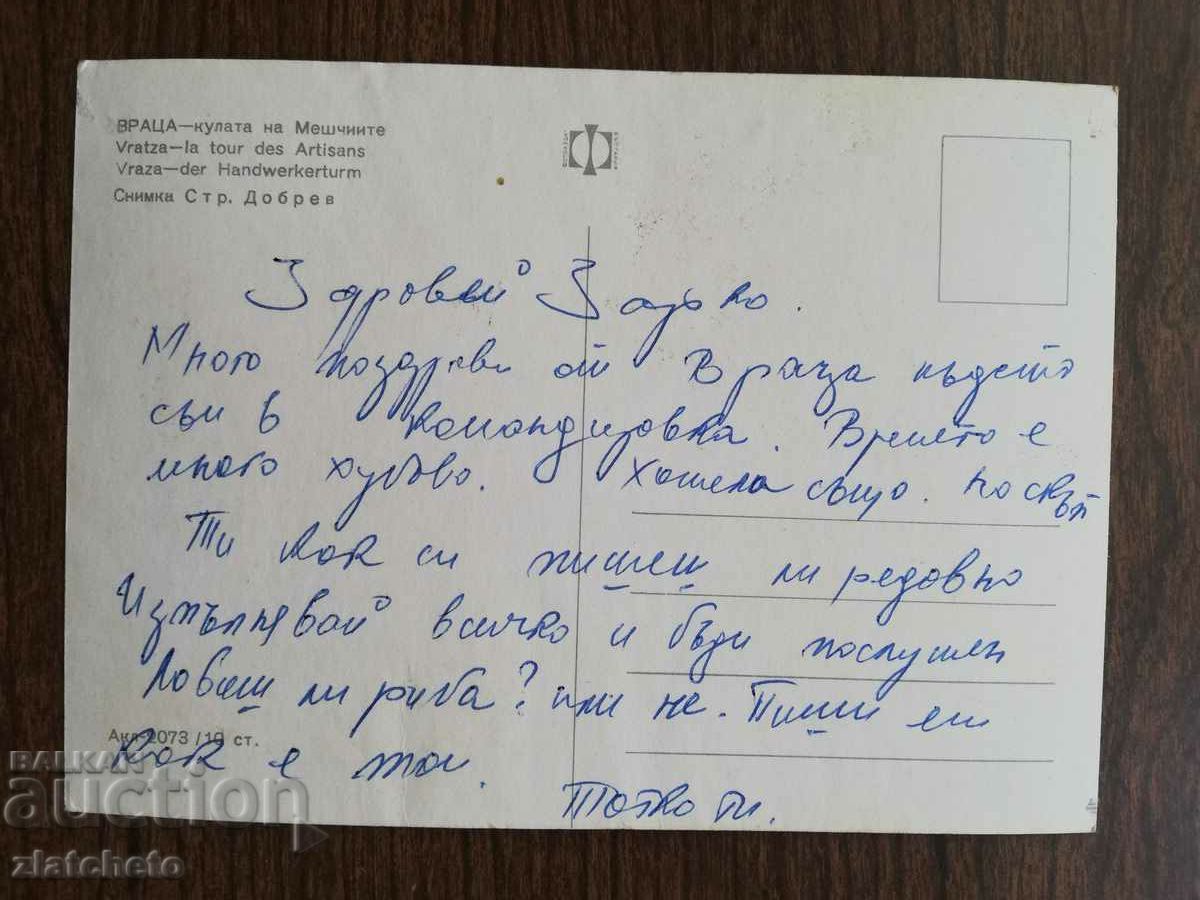 ВРАЦА—кулата на Мешчиите
Vratza—la tour des Artisans
Vraza—der Handwerkerturm
Снимка Стр. Добрев
Здровей
Много поздрави от Враца където
съм в командировка. Времето е
много хубаво. Хотела също. но скъп
Ти как си пишеш ли редовно
Изпълнявай всичко и бъди послушен
Ловиш ли риба? или не. Пиши ми
как е там.
Татко ти.
Акл-2073/10 ст.
BALKAN
auction
zlatcheto